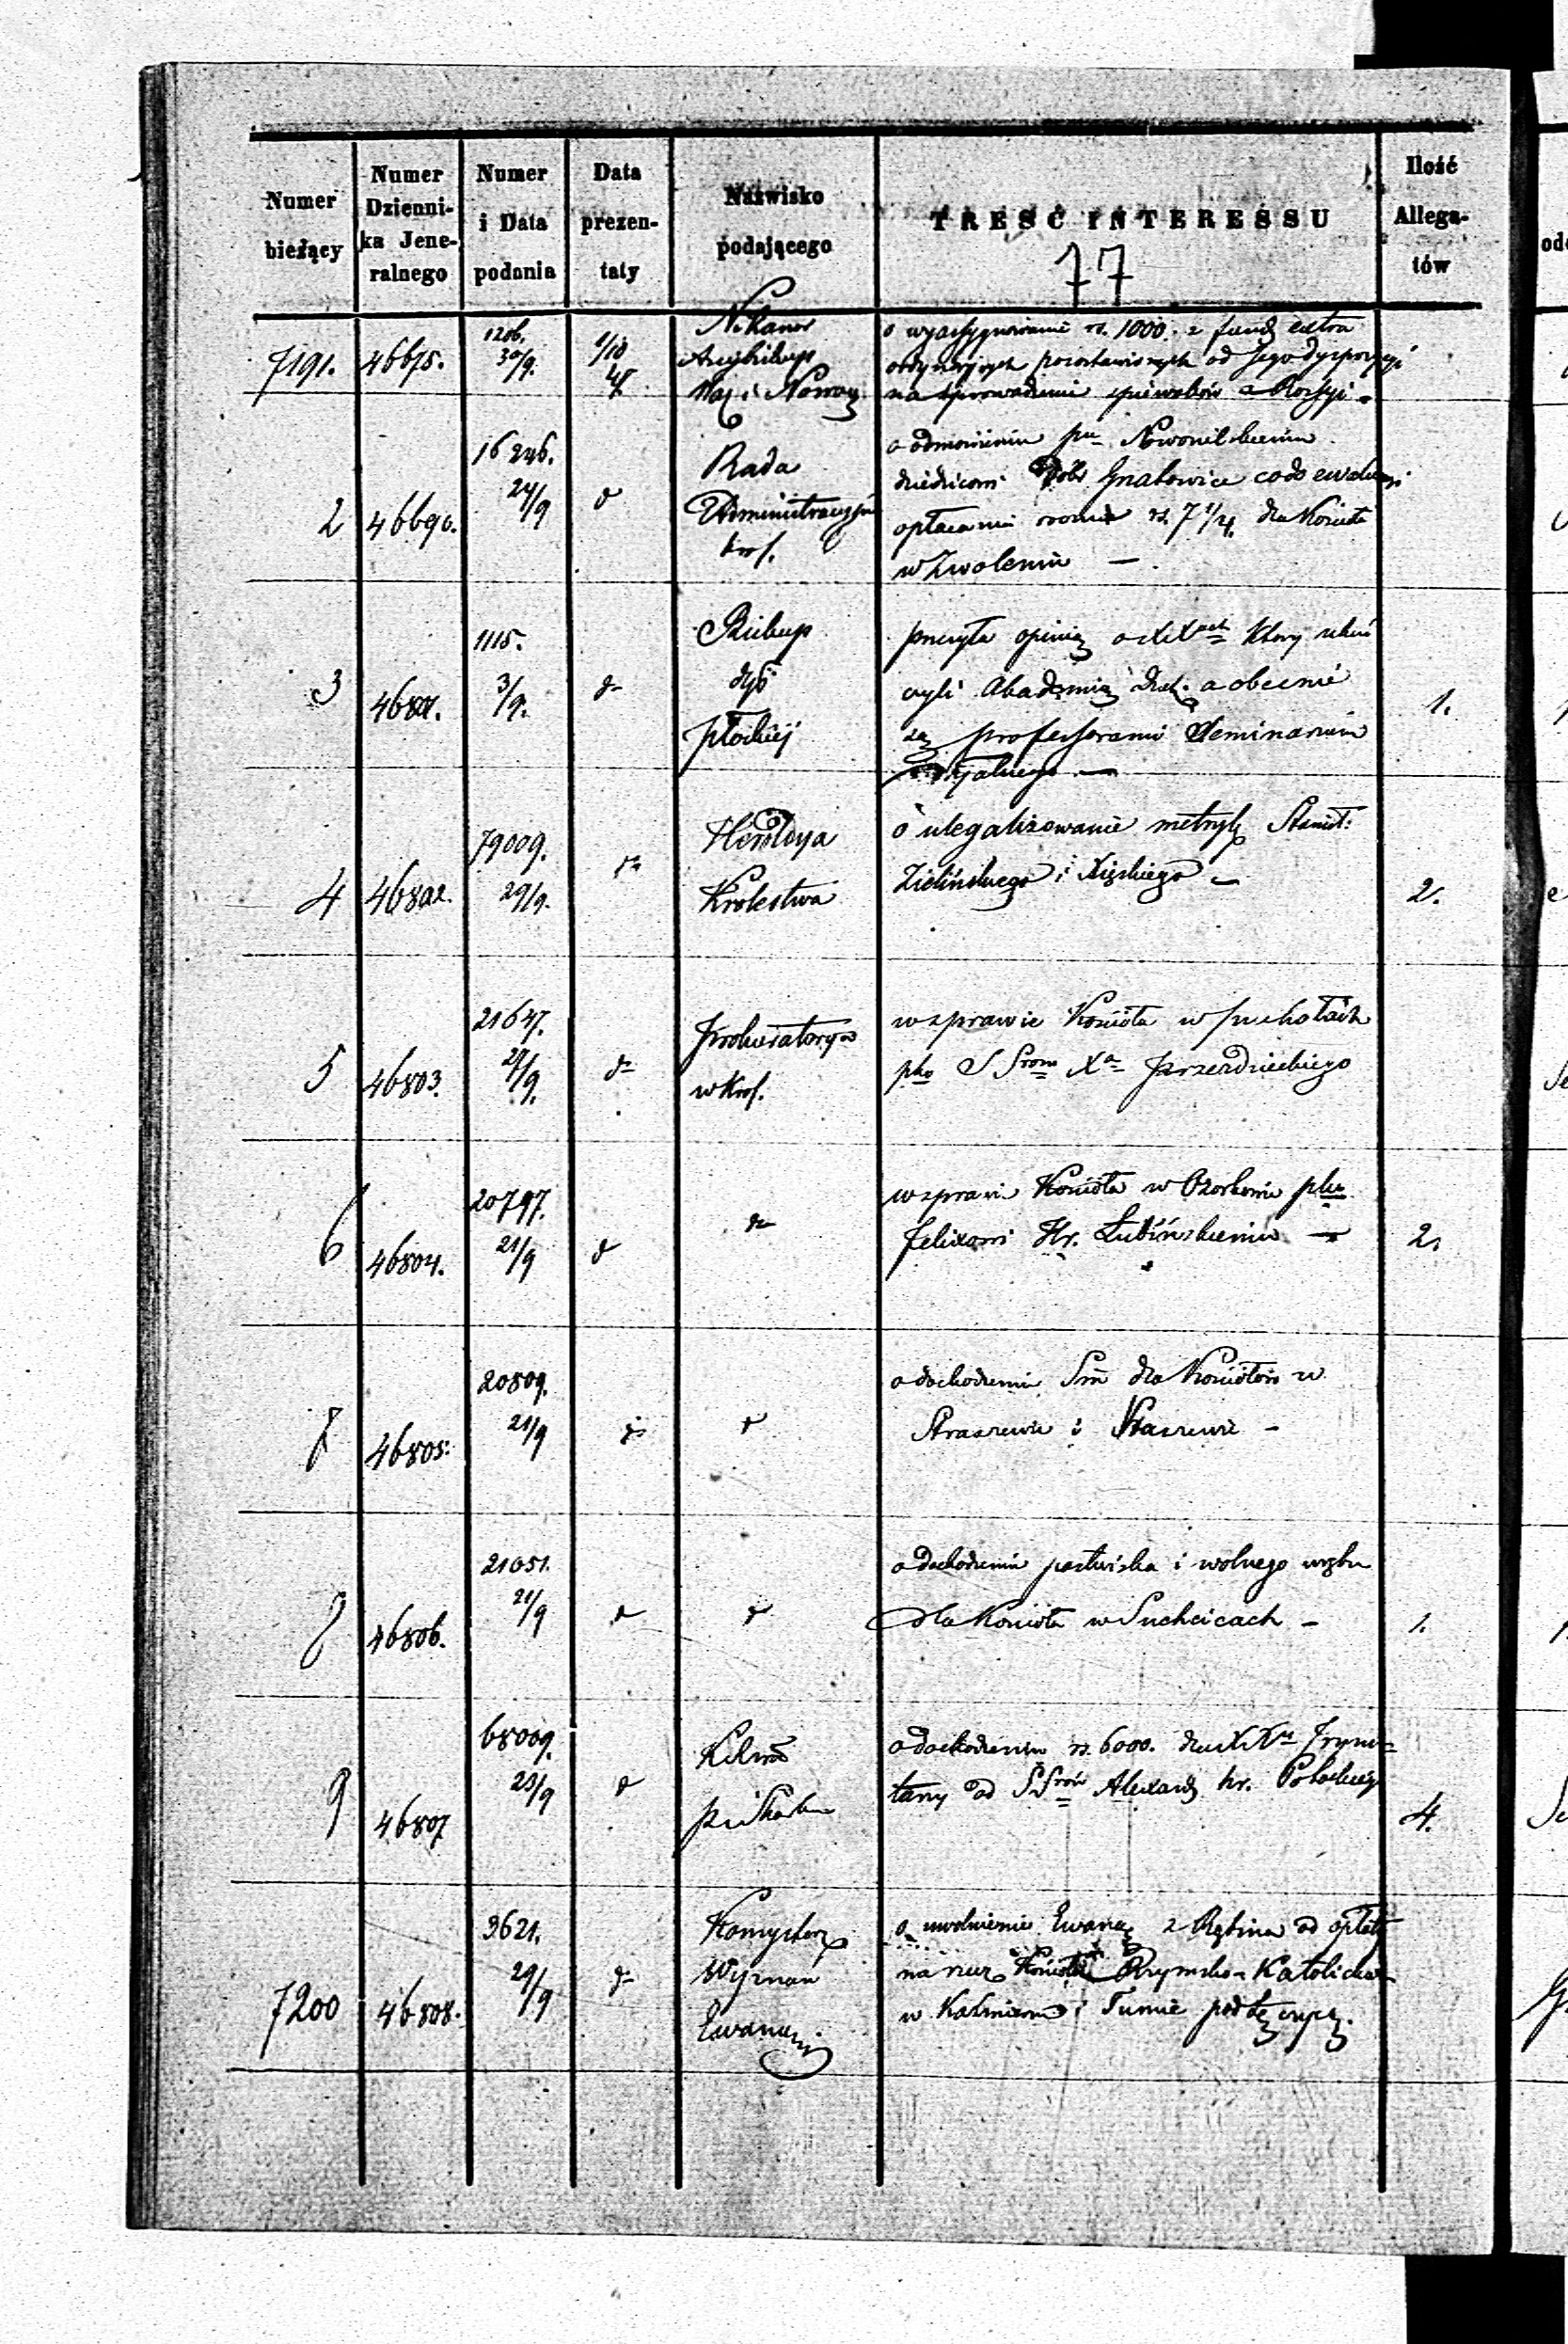 Numer bieżący
Numer Dzienni-ka Jene-ralnego
Numer i Data podania
Data prezen-taty
Nazwisko podającego
TREŚĆ INTERESSU
Ilość Allega-tów
77
7191. 46675. 1206. 30/9. 1/10
Nikanor
Arcybiskup
Warsz i Nowog
o wyasygnowanie rs. 1000. z fund extra
ordynaryjnych pozostawionych od Jego dyspozycyi
na sprowadzenie śpiewaków z Rossyi -
2 46690. 16246. 24/9 d
Rada
Administracyjna
Król.
o odmówieniu
dziedzicowi Dóbr Gnatowice co do
opłacania rs. 7 1/4. dla Kościoła
w Zwoleniu —
3 46801. 1115. 3/9. d
Biskup
dyó
płockiej
przesyła opinię o XX Który ukoń
czyli Akademią Duch. a obecnie
są professorami Seminarium
—
4 46802. 79009. 29/9.
Heroldya
Królestwa
o ulegalizowanie metryk Stanisł:
Zielińskiego i —
2.
1.
5 46803. 21647. 29/9. d
Prokuratorya
w Król.
w sprawie Kościoła w Puchałach
pko S Srom Xa
6 46804. 20797. 21/9 d
w sprawie Kościoła w Ozorkowie pko
Felixowi Hr. Łubińskiemu —
2.
7 46805. 20809. 21/9 d d
o dochodzeniu Sm dla Kościołów w
Straszewie i —
8 46806. 21051. 21/9 d d
o dochodzeniu pastwiska i wolnego wrębu
dla Kościoła w Suchcicach —
1.
9 46807 68009. 23/9 d
Kom
Skarbu
o dochodzeniu rs. 6000. dla XX Tryni=
tarzy od SSrów Alexand hr. Potockiego
4.
7200 46808. 3621. 29/9 d
Komysarz
Wyznań
Ewang.
o uwolnienie Ewang z Rębina od opłat
na rzecz Kościoła Rzymsko-Katolickie
w i Tumie pod Łęczycą.